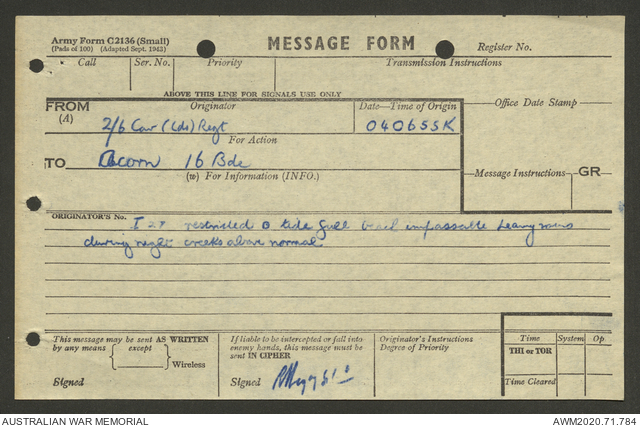 Army Form C2136 (Small)
(Pads of 100) (Adapted Sept. 1943)
MESSAGE FORM
Register No.
Call Ser. No. Priority Transmission Instructions
ABOVE THIS LINE FOR SIGNALS USE ONLY
FROM Originator Date—Time of Origin Office Date Stamp
(A) 2/6 Cav (Cdo) Regt 040655K
For Action
TO Acorn 16 Bde
(w) For Information (INFO.) Message Instructions GR
ORIGINATOR'S No. restricted tide full beach impassable heavy rains
during night creeks above normal
This message may be sent AS WRITTEN
by any means except
Wireless
Signed
If liable to be intercepted or fall into
enemy hands, this message must be
sent IN CIPHER
Signed
Originator's Instructions
Degree of Priority
Time System Op.
THI or TOR
Time Cleared
AUSTRALIAN WAR MEMORIAL AWM2020.71.784